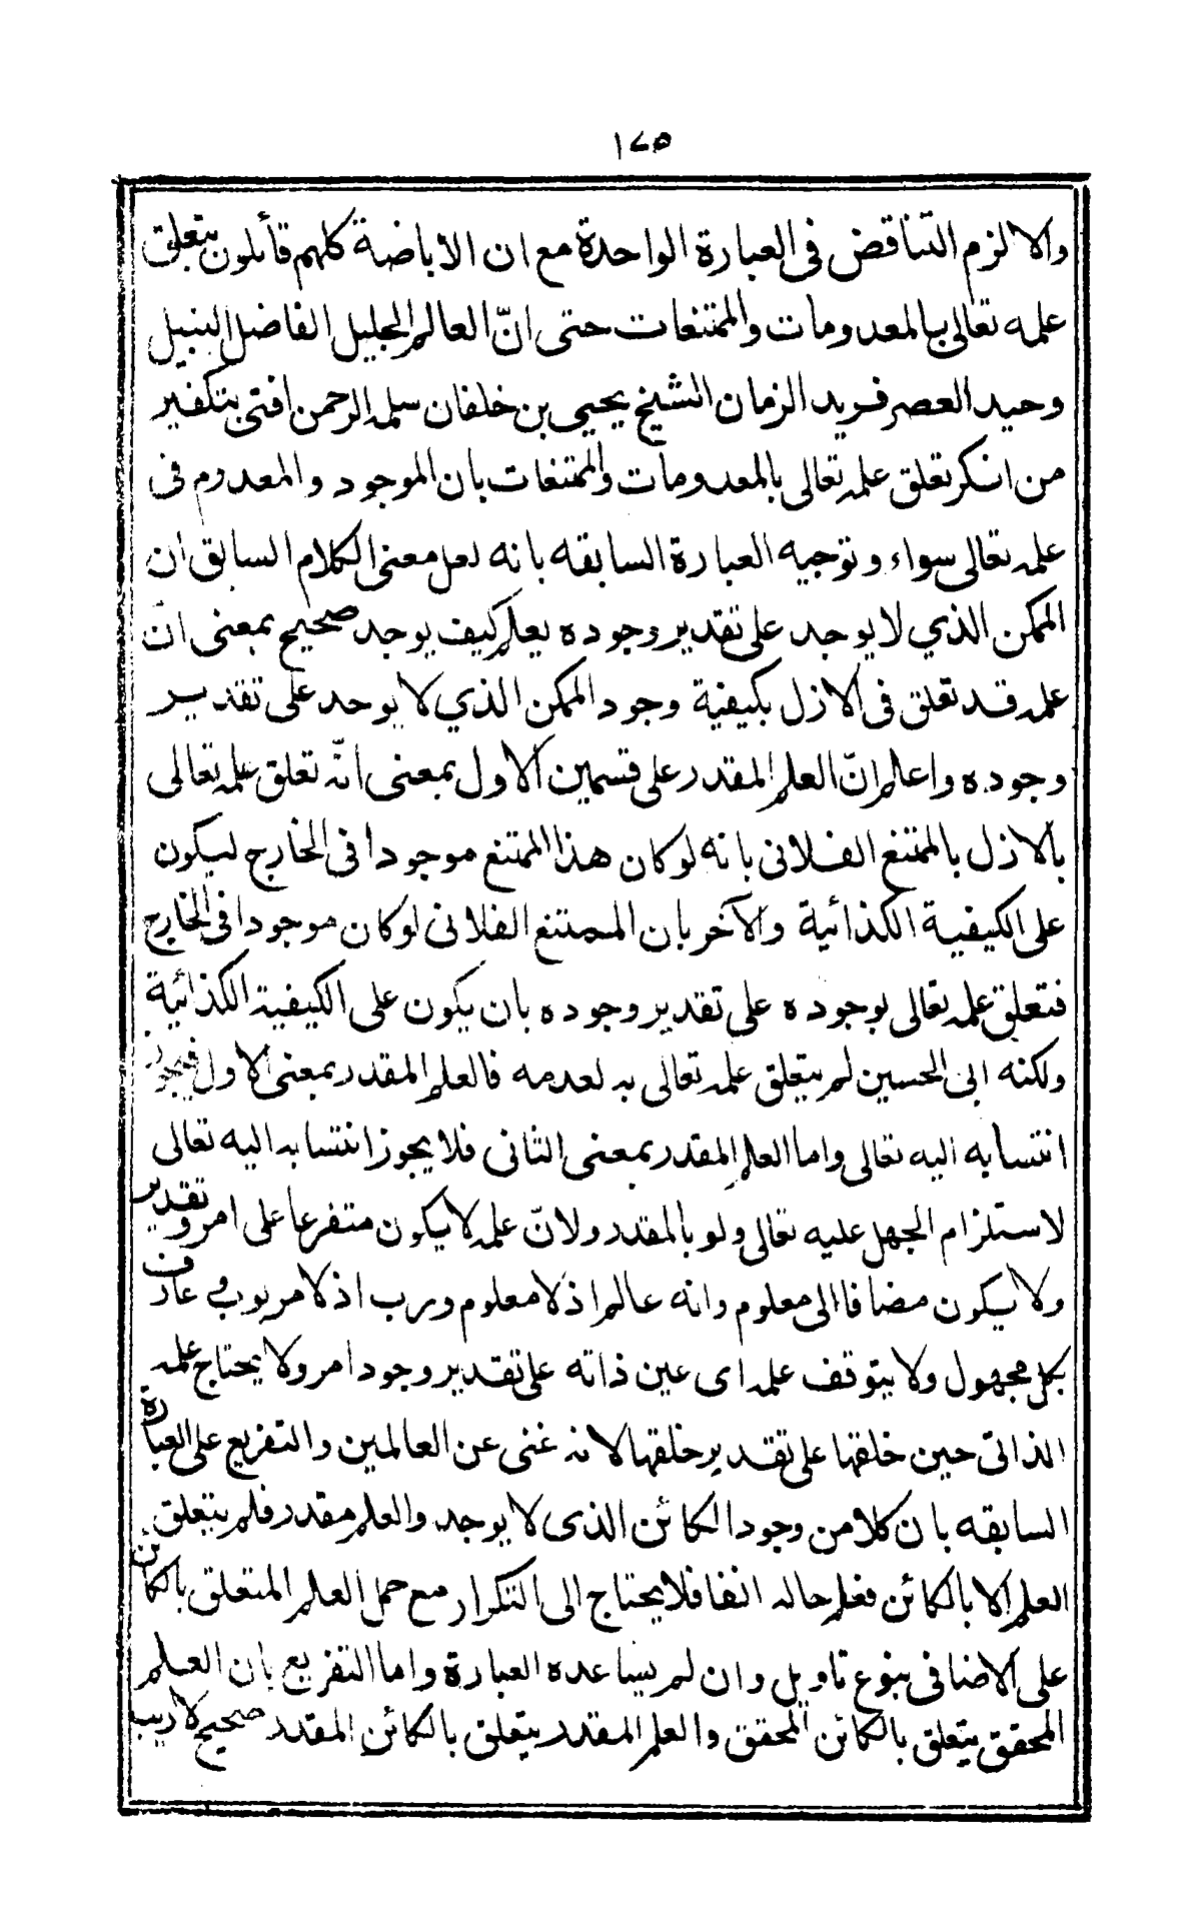 ١٧٥
والا لزم التّناقض فى العبارة الواحدة مع ان الاباضية كلهم قائلون بتعلق
علمه تعالى بالمعدومات والممتنعات حتى انّ العالم الجليل الفاضل النبيل
وحيد العصر فريد الزمان الشيخ يحيى بن خلفان سلمه الرحمن افتى بتكفير
من انكر تعلق علمه تعالى بالمعدومات والممتنعات بان الموجود والمعدوم فى
علمه تعالى سواء وتوجيه العبارة السابقه بانه لعل معنى الكلام السابق ان
الممكن الذي لا يوجد على تقدير وجوده يعلم كيف يوجد صحيح بمعنى انّ
علمه قد تعلق فى الازل بكيفية وجود الممكن الذي لا يوجد على تقدير
وجوده واعلم انّ العلم المقدر على قسمين الاول بمعنى انّه تعلق علمه تعالى
بالازل بالممتنع الفلانى بانه لو كان هذا الممتنع موجودا فى الخارج ليكون
على الكيفية الكذائية والآخر بان الممتنع الفلانى لو كان موجودا فى الخارج
فتعلق علمه تعالى بوجوده على تقدير وجوده بان يكون على الكيفية الكذائية
ولكنه ابى الحسين لم يتعلق علمه تعالى به لعدمه فالعلم المقدر بمعنى الاول فيجوز
انتسابه اليه تعالى واما العلم المقدر بمعنى الثانى فلا يجوز انتسابه اليه تعالى
لاستلزام الجهل عليه تعالى ولو بالمقدر ولانّ علمه لا يكون متفرعا على امر وتقدير
ولا يكون مضافا الى معلوم وانه عالم اذ لا معلوم ورب اذ لا مربوب وعارف
بكل مجهول ولا يتوقف علمه اى عين ذاته على تقدير وجود امر ولا يحتاج علمه
الذاتى حين خلقها على تقدير خلقها لانه غنى عن العالمين والتفريع على العبارة
السابقه بان كلا من وجود الكائن الذى لا يوجد والعلم مقدر فلم يتعلق
العلم الا بالكائن فعلم حاله انفا فلا يحتاج الى التكرار مع حمل العلم المتعلق بالكائن
على الاضافى بنوع تاويل وان لم يساعده العبارة واما التفريع بان العلم
المحقق يتعلق بالكائن المحقق والعلم المقدر يتعلق بالكائن المقدر صحيح لا ريب